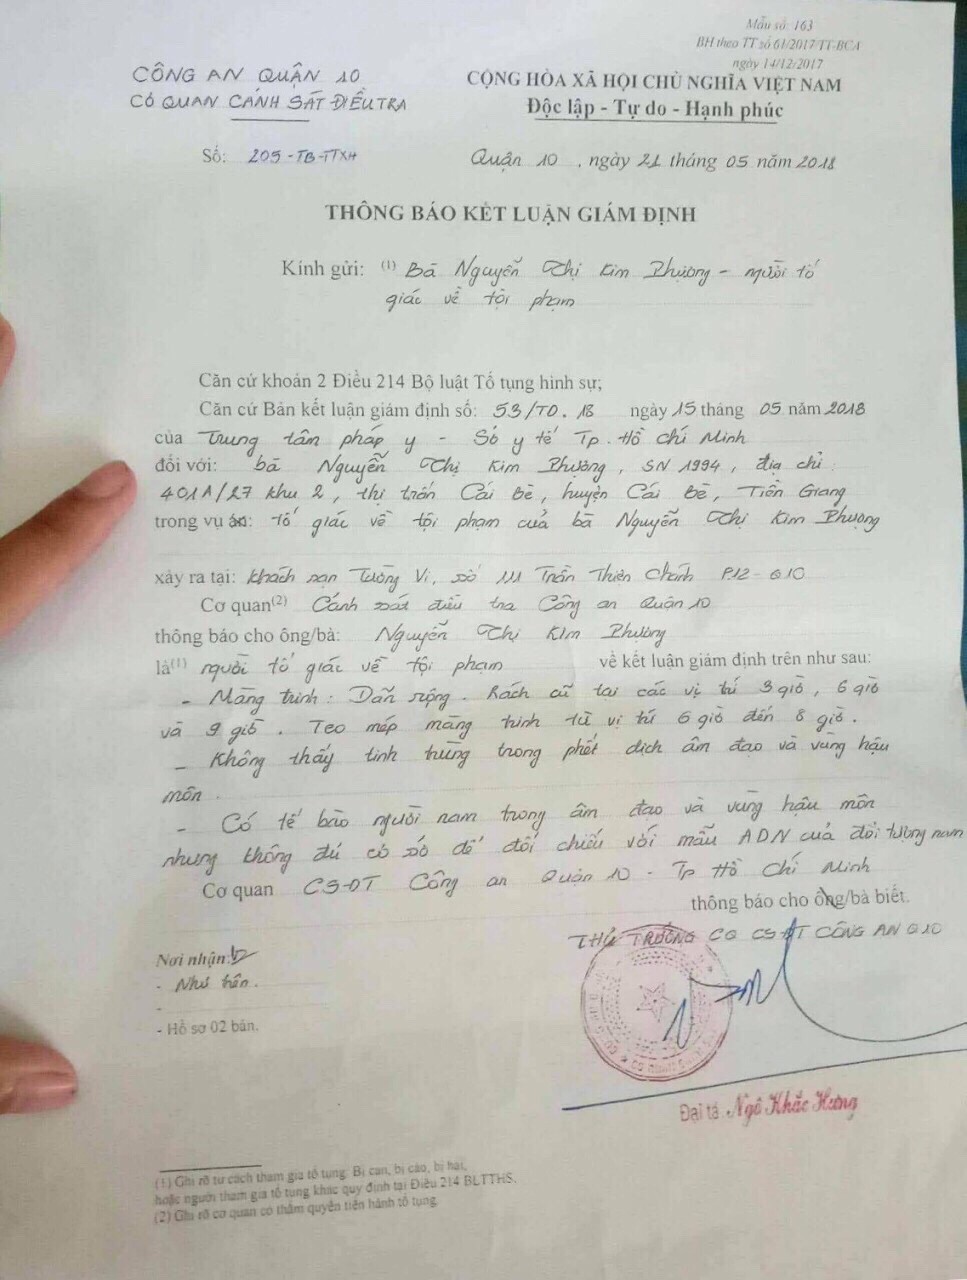 Mẫu số: 163
BH theo TT số 61/2017/TT-BCA
ngày 14/12/2017
CÔNG AN QUẬN 10
CƠ QUAN CẢNH SÁT ĐIỀU TRA
CỘNG HÒA XÃ HỘI CHỦ NGHĨA VIỆT NAM
Độc lập - Tự do - Hạnh phúc
Số: 205-TB-TTXH
Quận 10, ngày 21 tháng 05 năm 2018
THÔNG BÁO KẾT LUẬN GIÁM ĐỊNH
Kính gửi: (1) Bà Nguyễn Thị Kim Phượng - người tố
giác về tội phạm
Căn cứ khoản 2 Điều 214 Bộ luật Tố tụng hình sự;
Căn cứ Bản kết luận giám định số: 53/TD.18 ngày 15 tháng 05 năm 2018
của Trung tâm pháp y - Sở y tế Tp. Hồ Chí Minh
đối với: bà Nguyễn Thị Kim Phượng, SN 1994, địa chỉ
401A/27 khu 2, thị trấn Cái Bè, huyện Cái Bè, Tiền Giang
trong vụ án: tố giác về tội phạm của bà Nguyễn Thị Kim Phượng
xảy ra tại: khách sạn Tường Vi, số 111 Trần Thiện Chánh P.12-Q10
Cơ quan(2) Cảnh sát điều tra Công an Quận 10
thông báo cho ông/bà: Nguyễn Thị Kim Phượng
là(1) người tố giác về tội phạm về kết luận giám định trên như sau:
- Màng trinh: Dãn rộng. Rách cũ tại các vị trí 3 giờ, 6 giờ
và 9 giờ. Teo mép màng trinh từ vị trí 6 giờ đến 8 giờ.
- Không thấy tinh trùng trong phết dịch âm đạo và vùng hậu
môn.
- Có tế bào người nam trong âm đạo và vùng hậu môn
nhưng không đủ cơ sở để đối chiếu với mẫu ADN của đối tượng nam
Cơ quan CSĐT Công an Quận 10 - Tp Hồ Chí Minh
thông báo cho ông/bà biết.
THỦ TRƯỞNG CQ CSĐT CÔNG AN Q10
Nơi nhận:
- Như trên.
-
- Hồ sơ 02 bản.
Đại tá Ngô Khắc Hưng
(1) Ghi rõ tư cách tham gia tố tụng: Bị can, bị cáo, bị hại,
hoặc người tham gia tố tụng khác quy định tại Điều 214 BLTTHS.
(2) Ghi rõ cơ quan có thẩm quyền tiến hành tố tụng.